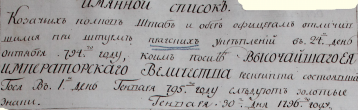 имянной списокъ.
Козачихъ полковъ Штабъ и оберъ офицерамъ отличив
шимся при штурмѣ пражскихъ укрѣпленій въ 24. день
октября 794. году, коимъ посилѣ Высочайшаго Ея
Императорскаго Величества рескрипта состоявша
гося въ 1. день Генваря 795. году слѣдуютъ золотые
знаки. Генваря 30. дня 1796. году.